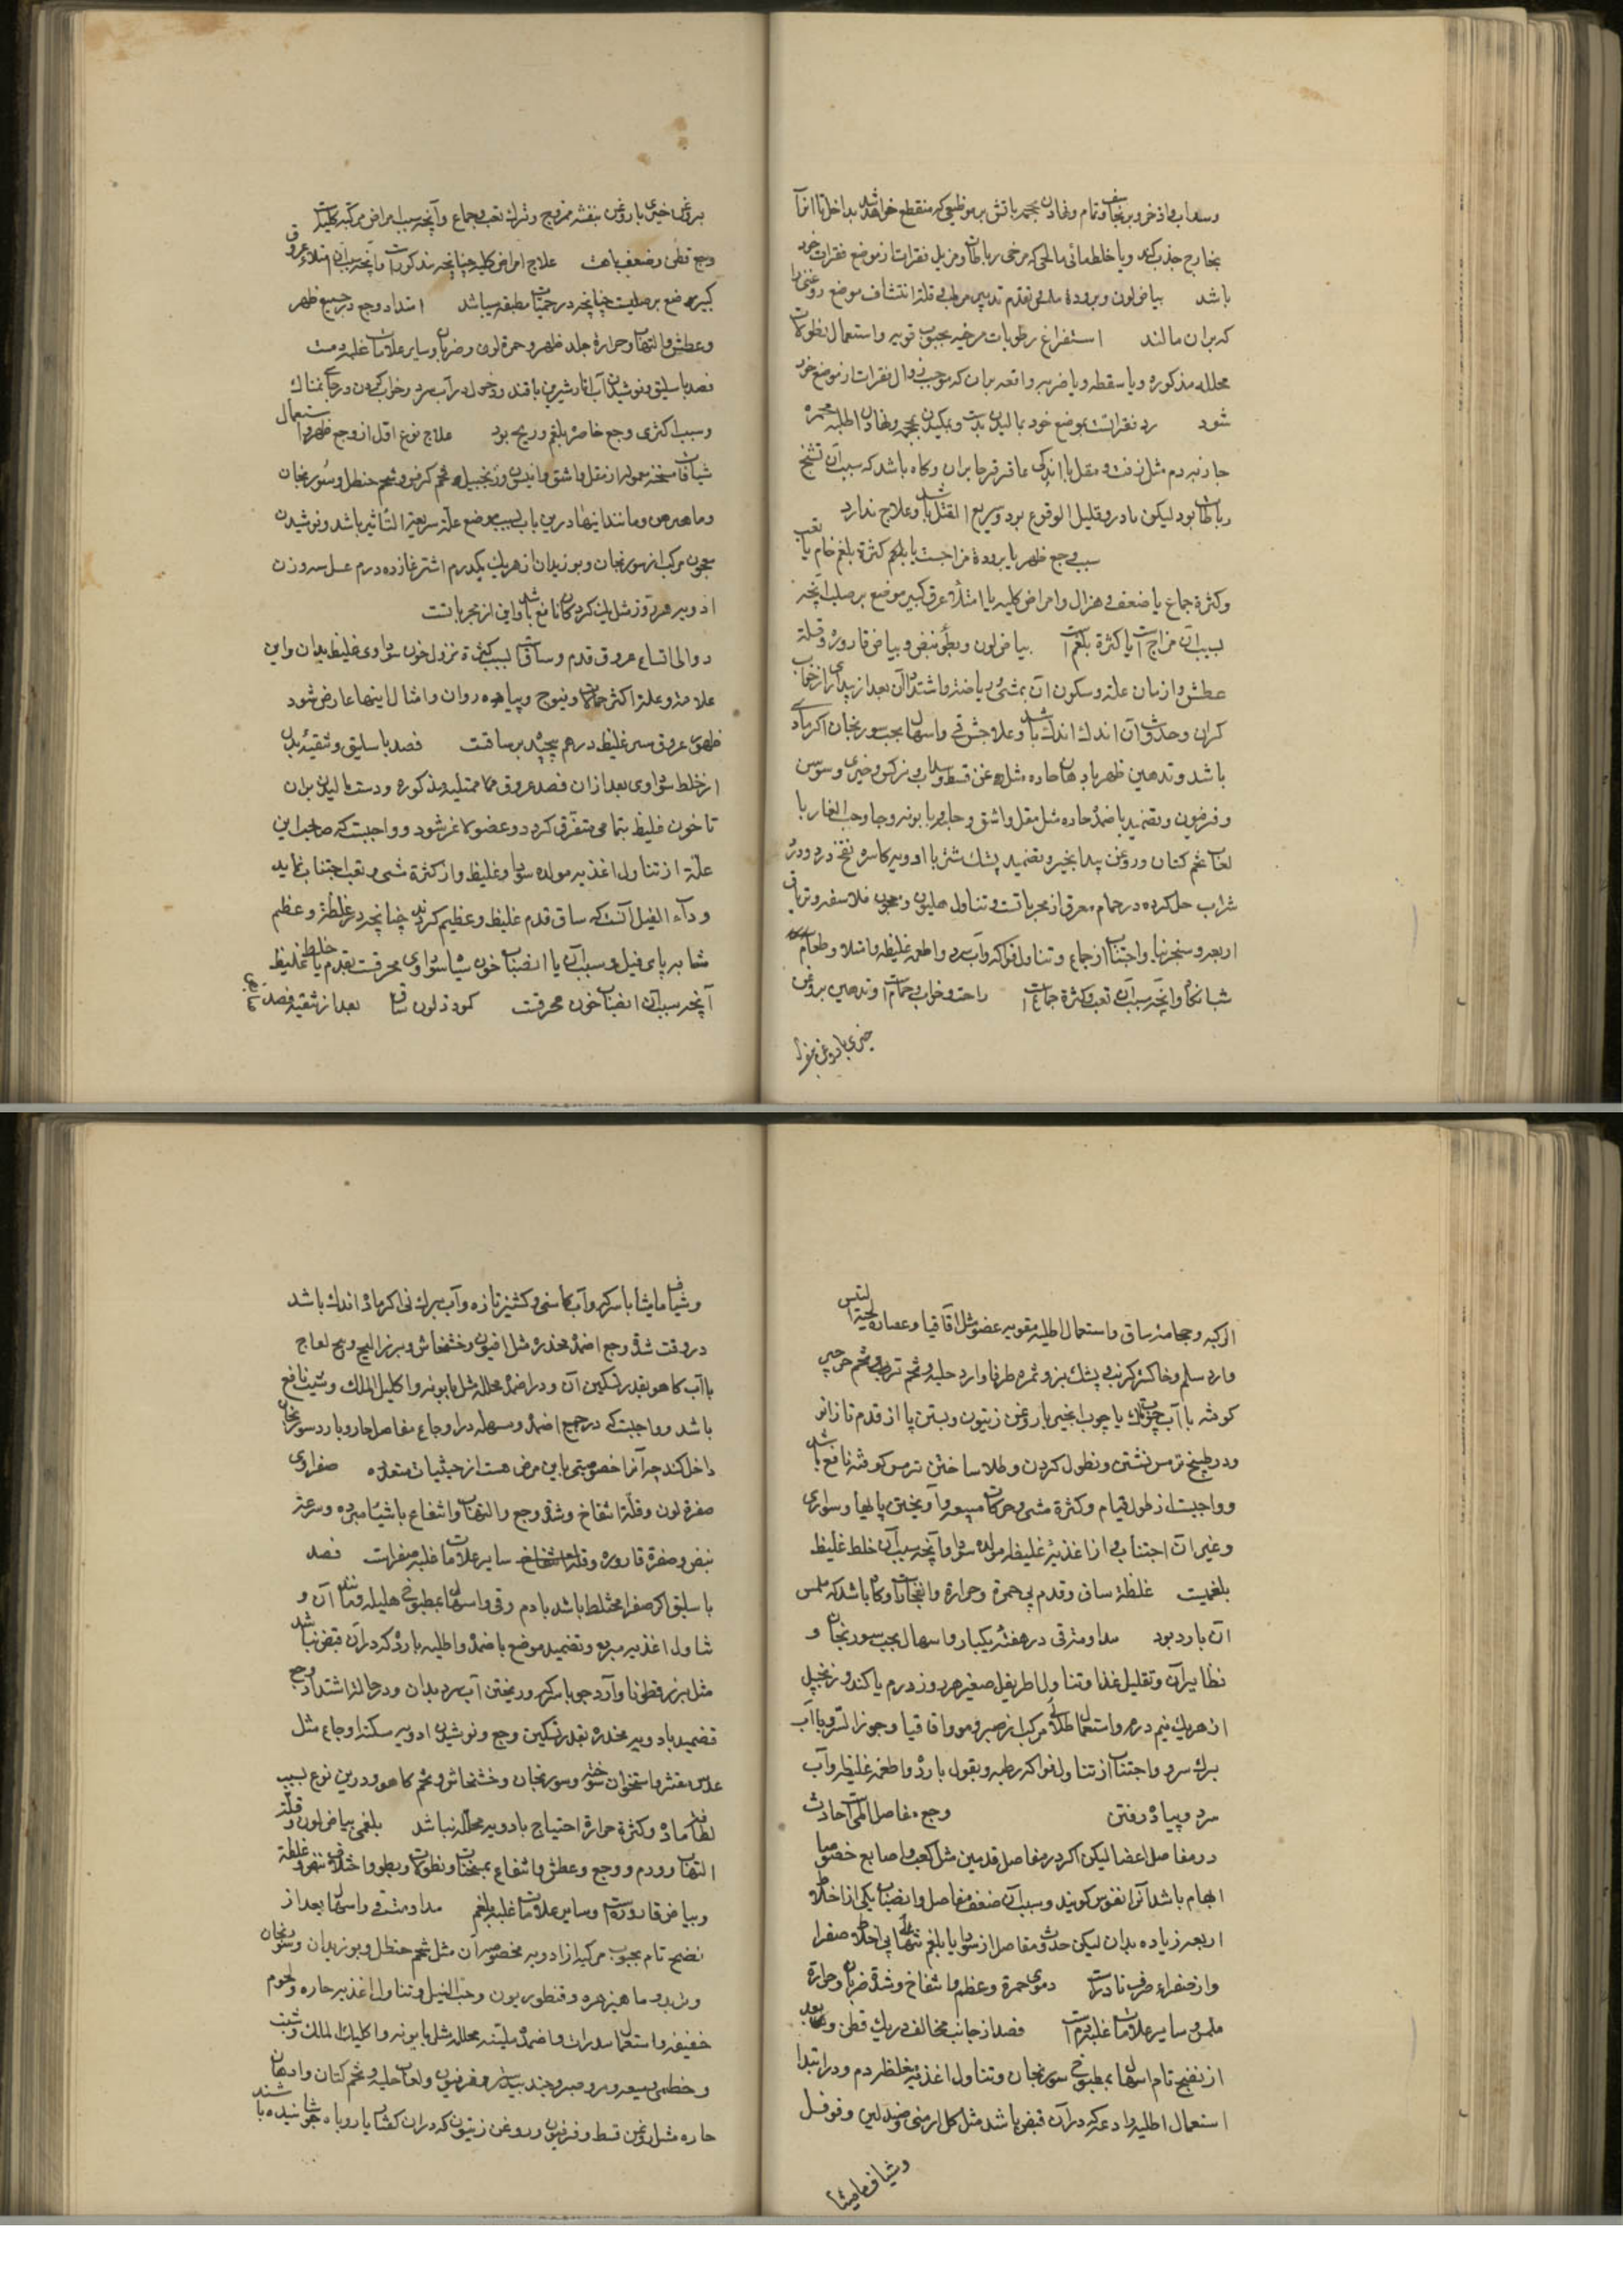 وسداب و اذخر و برنجاسف و تمام و نهادن محجمه باتش بر موضعی که منقطع خواهد شد بداخل تا انرا
بخارج جذب کند و یا خلط مائی مالحی که مرخی رباطات و مزیل فقرات از موضع فقرات خود
باشد بیاض لون و برودة ملمس تقدم تدبیر مرطب قلة انتشاف موضع روغنی را
که بران مالند استفراغ رطوبات مرخیه بحبوب قویه و استعمال نطولات
محلله مذکوره و یا سقطه و یا ضربه واقعه بران که موجب زوال فقرات از موضع خود
شود رد فقرات بموضع خود بمالیدن بدست و بمکیدن محجمه و نهادن اطلیه محمره
جاذبه دم مثل زفت و مقل با اندکی عاقرقرحا بران و کاه باشد که سبب آن تشنج
رباطات بود لیکن نادر و قلیل الوقوع بود و سریع القتل باشد و علاج ندارد
سبب وجع ظهر یا برودة مزاجست یا بلغم کثرة بلغم خام یا تعب
و کثرة جماع یا ضعف و هزال و امراض کلیه یا امتلاء عرق کبیر موضع بر صلب آنچه
بسبب آن مزاج است یا کثرة بلغم است بیاض لون و بطؤ نبض و بیاض قاروره و قلة
عطش و ازمان علة و سکون آن بمشی و ریاضة و اشتداد آن بعد از بیداری از خواب
کران و حدوث آن اندک اندک باشد و علاجش قی و اسهال بحب سورنجان اکر مادی
باشد و تدهین ظهر بادهان حاره مثل روغن قسط و سداب و نرکس و خیری و سوسن
و فرفیون و تضمید باضمدة حاره مثل مقل و اشق و جاوشیر با بونه و حب الغار با
لعاب تخم کتان و روغن بیدانجیر و تضمید پشک شتر با ادویه کاسره نفخ درد و درد
شراب حل کرده در حمام معرق از مجرباتست و تناول هلیون و معجون فلاسفه و تریاق
اربعه و سنجرنیا و اجتناب از جماع و تناول فواکه و آب سرد و اطعمه غلیظه و امتلا و طعام
شبانکاه و آنچه سبب آن تعب و کثرة جماعست راحت و خواب و حمامست و تدهین بروغن
خیری با روغن بنفشه
بروغن خیری با روغن بنفشه ممزوج و ترک تعب و جماع و آنچه سبب امراض مرکبه کلیه است
وجع قطن و ضعف باهست علاج امراض کلیه چنانچه مذکور است و آنچه سبب آن امتلاء عروق
کبیر موضع بر صلبست چنانچه در حمیات مطبقه میباشد امتداد وجع در جمیع ظهر
و عطش و التهاب و حرارة جلد ظهر و حمرة لون و ضربان و سایر علامات غلبه دمست
فصد باسلیق و نوشیدن آب انار شیرین با قند و دخول در آب سرد و خواب کردن در جای نمناک
و سبب اکثری وجع خاصره بلغم و ریح بود علاج نوع اول از وجع ظهر و استعمال
شیافات مسخنه معموله از مقل و اشق و انیسون و زنجبیل و تخم کرفس و شحم حنظل و سورنجان
و ماهیزهره و مانند اینها درین باب بسبب موضع علة سریعة التأثیر باشد و نوشیدن
معجون مرکب از سورنجان و بوزیدان از هر یک یکدرم اشترغاز ده درم عسل سه وزن
ادویه هر روز مثل یک کردکان نافع باشد و این از مجرباتست
دوالی اتساع عروق قدم و ساق است بسبب کثرة نزول خون سوداوی غلیظ بدان و این
علامة و علة اکثر حمالان و نیوج و پیاده روان و امثال اینها عارض شود
ظهور عروق سبز غلیظ درهم پیچیده بر ساقست فصد باسلیق و تنقیه بدن
از خلط سوداوی بعد ازان فصد عروق ممتلیه مذکوره و دست مالیدن بران
تا خون غلیظ بتمامی متفرق کردد و عضو لاغر شود و واجبست که صاحب این
علة از تناول اغذیه مولده سودا و غلیظ و از کثرة مشی و تعب اجتناب نماید
و داء الفیل آنست که ساق قدم غلیظ و عظیم کردند چنانچه در غلظة و عظم
مشابه پای فیل و سبب آن یا انصباب خون سیاه سوداوی محرقست بقدم یا خلط غلیظ
آنچه سبب آن انصباب خون محرقست کمودة لون ساق بعد از تنقیه فصد
الرکبه و حجامة ساق و استعمال اطلیه مقویه عضو مثل اقاقیا و عصاره لحیة التیس
وارد سلم و خاکستر کرنب و پشک بز و ثمره طرفا وارد حلبه و تخم ترب و تخم جرجیر
کوفته با آب چوبک یا چوب انجیر با روغن زیتون و بستن پا از قدم تا زانو
و در طبیخ ترمس نشستن و نطول کردن و طلا ساختن ترمس کوفته نافع باشد
و واجبست از طول قیام و کثرة مشی و حرکات متعبه و آویختن پایها و سواری
و غیر ان اجتناب و از اغذیة غلیظه مولده سودا و آنچه سبب آن خلط غلیظ
بلغمیست غلظة ساق و قدم بی حمرة و حرارة و انفجارات و کاه باشد که ملمس
آن بارد بود مداومت قی در هفته یکبار و اسهال بحب سورنجان و
نظایر آن و تقلیل غذا و تناول اطریفل صغیر هر روز درم یا کندر و زنجبیل
از هر یک نیم درم و استعمال طلای مرکب از صبر و مر و اقاقیا و جوز السرو با آب
برک سرو و اجتناب از تناول فواکه رطبه و بقول بارده و اطعمه غلیظه و آب
سرد و پیاده رفتن وجع مفاصل المیست حادث
در مفاصل اعضا لیکن اکر در مفاصل قدمین مثل کعب و اصابع خصوصا
ابهام باشد آنرا نقرس کویند و سبب آن ضعف مفاصل و انصباب یکی از اخلاط
اربعه زیاده بدان لیکن حدوث مفاصل از سودا یا بلغم تنها بی اخلاط صفرا
و از صفراء صرف نادرست دموی حمرة و عظم و انتفاخ و شدة ضربان و حرارة
ملمس و سایر علامات غلبه دم است فصد از جانب مخالف در یک قطن و بعد
از نضج تام اسهال بمطبوخ سورنجان و تناول اغذیه مغلظه دم و در ابتدا
استعمال اطلیه رادعه که در آن قبض باشد مثل کل ارمنی و صندلین و فوفل
و شیاف مامیثا
و شیاف مامیثا با سرکه و آب کاسنی و کشنیز تازه و آب برک نی اکر ماده اندک باشد
در وقت شدة وجع اضمدة مخدره مثل افیون و خشخاش و بزر البنج و بیخ لفاح
با آب کاهو بقدر تسکین آن و در اضمدة محلله مثل بابونه و اکلیل الملک و شبت نافع
باشد و واجبست که در جمیع اضمده و مسهله در اوجاع مفاصل حار و بارد سورنجان
داخل کند چه آنرا خصوصیتی باین مرض هست از حیثیات متعدده صفراوی
صفرة لون و قلة انتفاخ و شدة وجع و التهاب و انتفاع باشیاء مبرده و سرعة
نبض و صفرة قاروره و سایر علامات غلبه صفراست فصد
باسلیق اکر صفرا مختلط باشد بادم و قی و اسهال بمطبوخ هلیله و مانند آن و
تناول اغذیه مبرده و تضمید موضع باضمده و اطلیه بارده که در آن قبض نباشد
مثل بزر قطونا و آرد جو با سرکه و ریختن آب سرد بدان و در حالة اشتداد وجع
تضمید بادویه مخدره بقدر تسکین وجع و نوشیدن ادویه مسکنه اوجاع مثل
عدس مقشر و استخوان سوخته و سورنجان و خشخاش و تخم کاهو و درین نوع بسبب
لطافت ماده و کثرة حرارة احتیاج بادویه محلله نباشد بلغمی بیاض لون و قلة
التهاب و ورم و وجع و عطش و انتفاع بمسخنات و نطولات و بطؤ و اختلاف نبض و غلظة
و بیاض قاروره است و سایر علامات غلبه بلغم مداومت قی و اسهال بعد از
نضج تام بحبوب مرکبه از ادویه مخصوصه بران مثل شحم حنظل و بوزیدان و سورنجان
و تربد و ماهیزهره و قنطوریون و حب النیل و تناول اغذیه حاره و لحوم
خفیفه و استعمال مدرات و اضمدة ملینه محلله مثل بابونه و اکلیل الملک و شبت
و خطمی و میعه و مر و صبر و جندبیدستر و فرفیون و لعاب حلبه و تخم کتان و ادهان
حاره مثل روغن قسط و فرفیون و روغن زیتون که دران کفتار یا روباه جوشانیده باشند